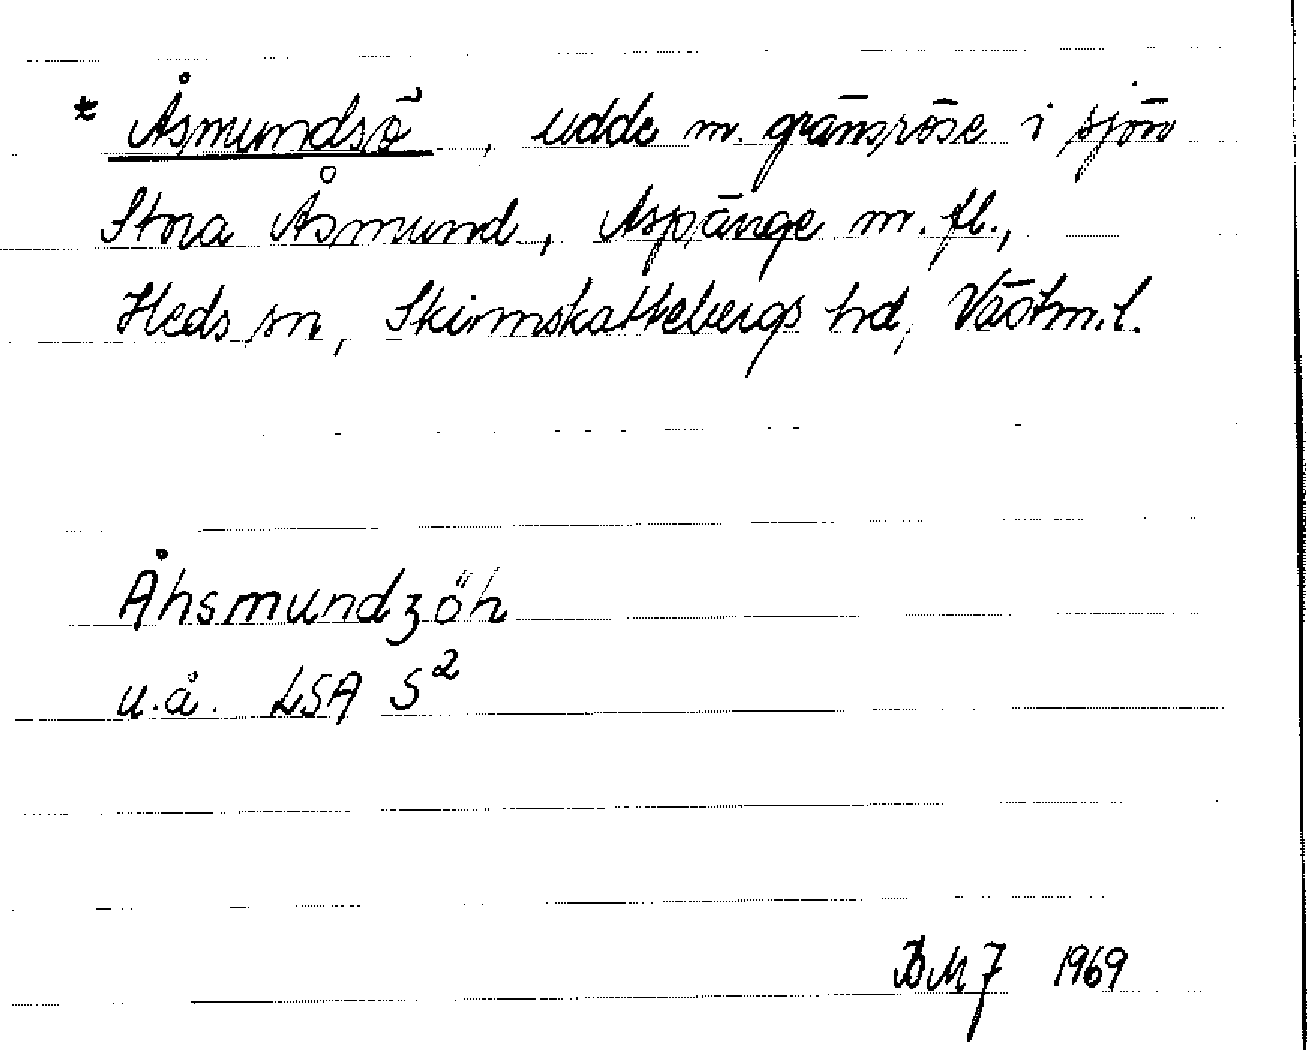 * Åsmundsö, udde m. gränsröse i sjön
Stora Åsmund, Aspänge m. fl.,
Heds sn, Skinnskattebergs hd, Västm. l.
Åhsmundzöh
u.å. LSA S²
1969